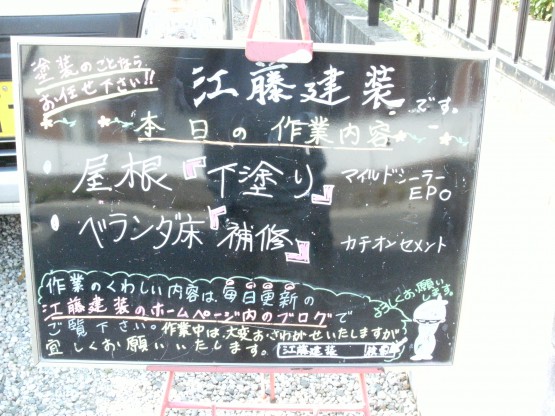 塗装のことなら
お任せ下さい!!
江藤建装です。
本日の作業内容
屋根『下塗り』 マイルドシーラー
EPO
ベランダ床『補修』 カチオンセメント
作業のくわしい内容は毎日更新の
江藤建装のホームページ内のブログで
ご覧下さい。作業中は大変おさわがせいたしますが
宜しくお願いいたします。 江藤建装
よろしくお願い
します。